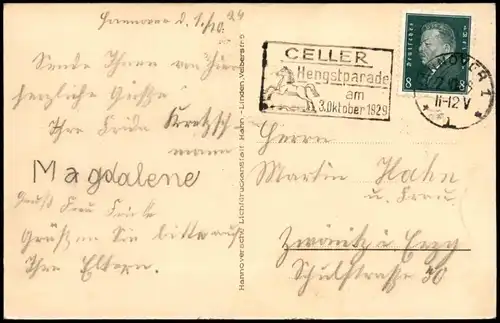 Hannover d. 1./10. 29
Sende Ihnen von hier
herzliche Grüße!
Ihre Frida Kretzsch
mann
Magdalene
Gruß Frau
Grüßen Sie bitte auch
Ihre Eltern.
Hannoversche Lichtdruckanstalt Hahn - Linden, Velberstr. 5
CELLER
Hengstparade
am
3. Oktober 1929
Deutsches Reich
8 8
HANNOVER 1
11-12 V
Herrn
Martin Hahn
u. Frau.
Zwönitz i. Erzg
Schulstraße 30